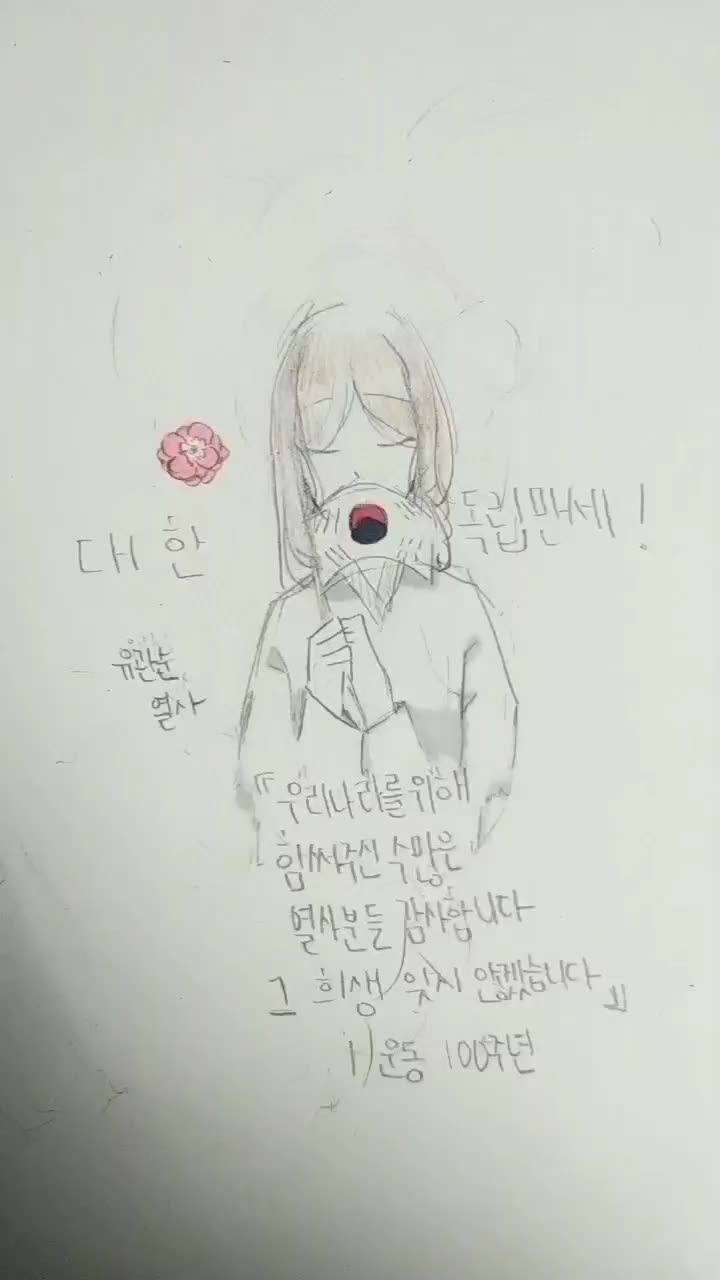 대한 독립만세!
유관순
열사
『우리나라를위해
힘써주신 수많은
열사분들 감사합니다
그 희생 잊지 않겠습니다』
운동 100주년